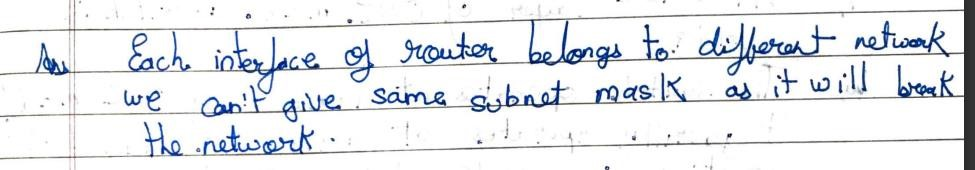 Ans Each interface of router belongs to different network
we can't give same subnet mask as it will break
the network.